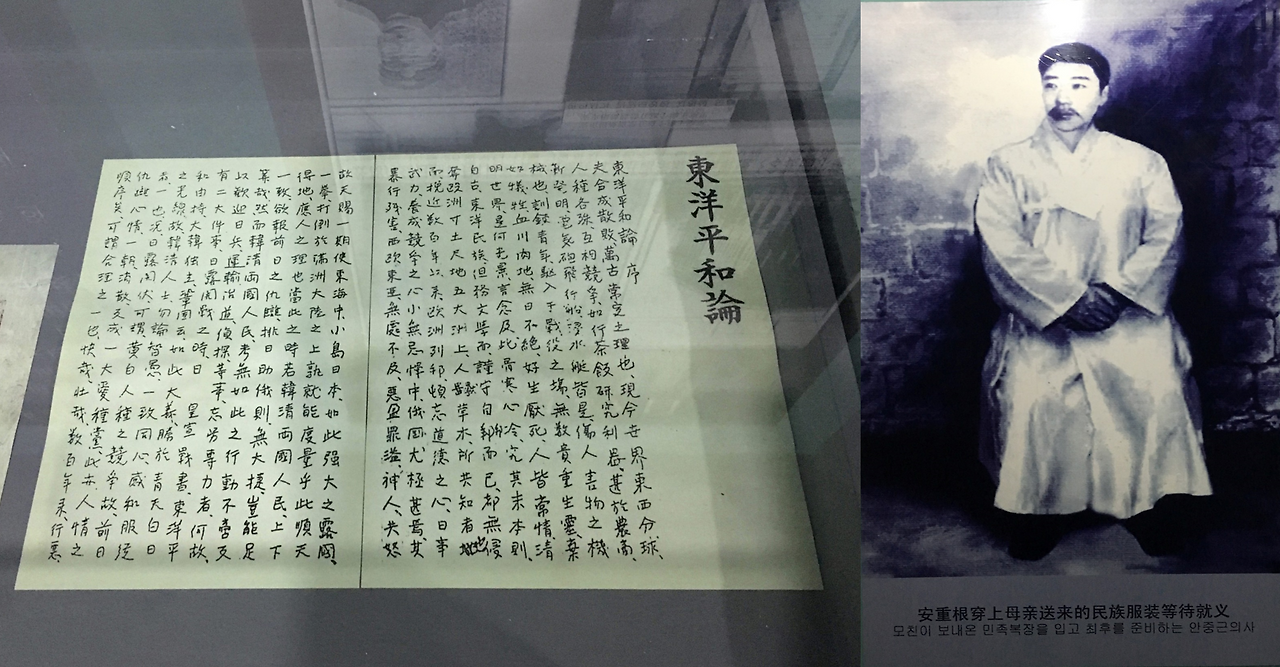 東洋平和論
東洋平和論 序
夫合成散敗萬古常定之理也、現今世界東西分球、
人種各殊、互相競爭、如行茶飯研究利器、甚於農商、
新發明電氣砲飛行船浸水艇皆是傷人害物之機
械也、訓鍊青年、驅入于戰役之場、無數貴重生靈、棄
如犧牲、血川肉地、無日不絶、好生厭死、人皆常情、清
明世界、是何光景、言念及此、骨寒心冷、究其末本、則
自古東洋民族、但務文學、而謹守自邦而已、都無侵
奪歐洲寸土尺地、五大洲上、人獸草木、所共知者也
而挽近數百年以來、歐洲列邦、頓忘道德之心、日事
武力、養成競爭之心、小無忌憚、中俄國尤極甚焉、其
暴行殘害、西歐東亞、無處不及、惡盈罪溢、神人共怒
故天賜一期、使東海中小島日本、如此强大之露國、
一拳打倒於滿洲大陸之上、孰就能度量乎、此順天
得地應人之理也、當此之時、若韓清兩國人民、上下
一致、欲報前日之仇讎、排日助俄、則無大捷、豈能足
算哉、然而韓清兩國人民、考無如此之行動、不啻反
以歡迎日兵、運輸治道偵探等事、忘勞專力者、何故、
有二大件事、日露開戰之時、日皇宣戰書、東洋平
和由持、大韓獨立鞏固云、如此大義、勝於青天白日
之光線、故韓清人士、勿論智愚、一致同心、感和服從
者一也、況日露開仗、可謂黃白人種之競爭、故前日
仇讎心情、一朝消散、反成一大愛種黨、此亦人情之
順序矣、可謂合理之一也、快哉、壯哉、數百年來行惡、
安重根穿上母亲送来的民族服装等待就义
모친이 보내온 민족복장을 입고 최후를 준비하는 안중근의사